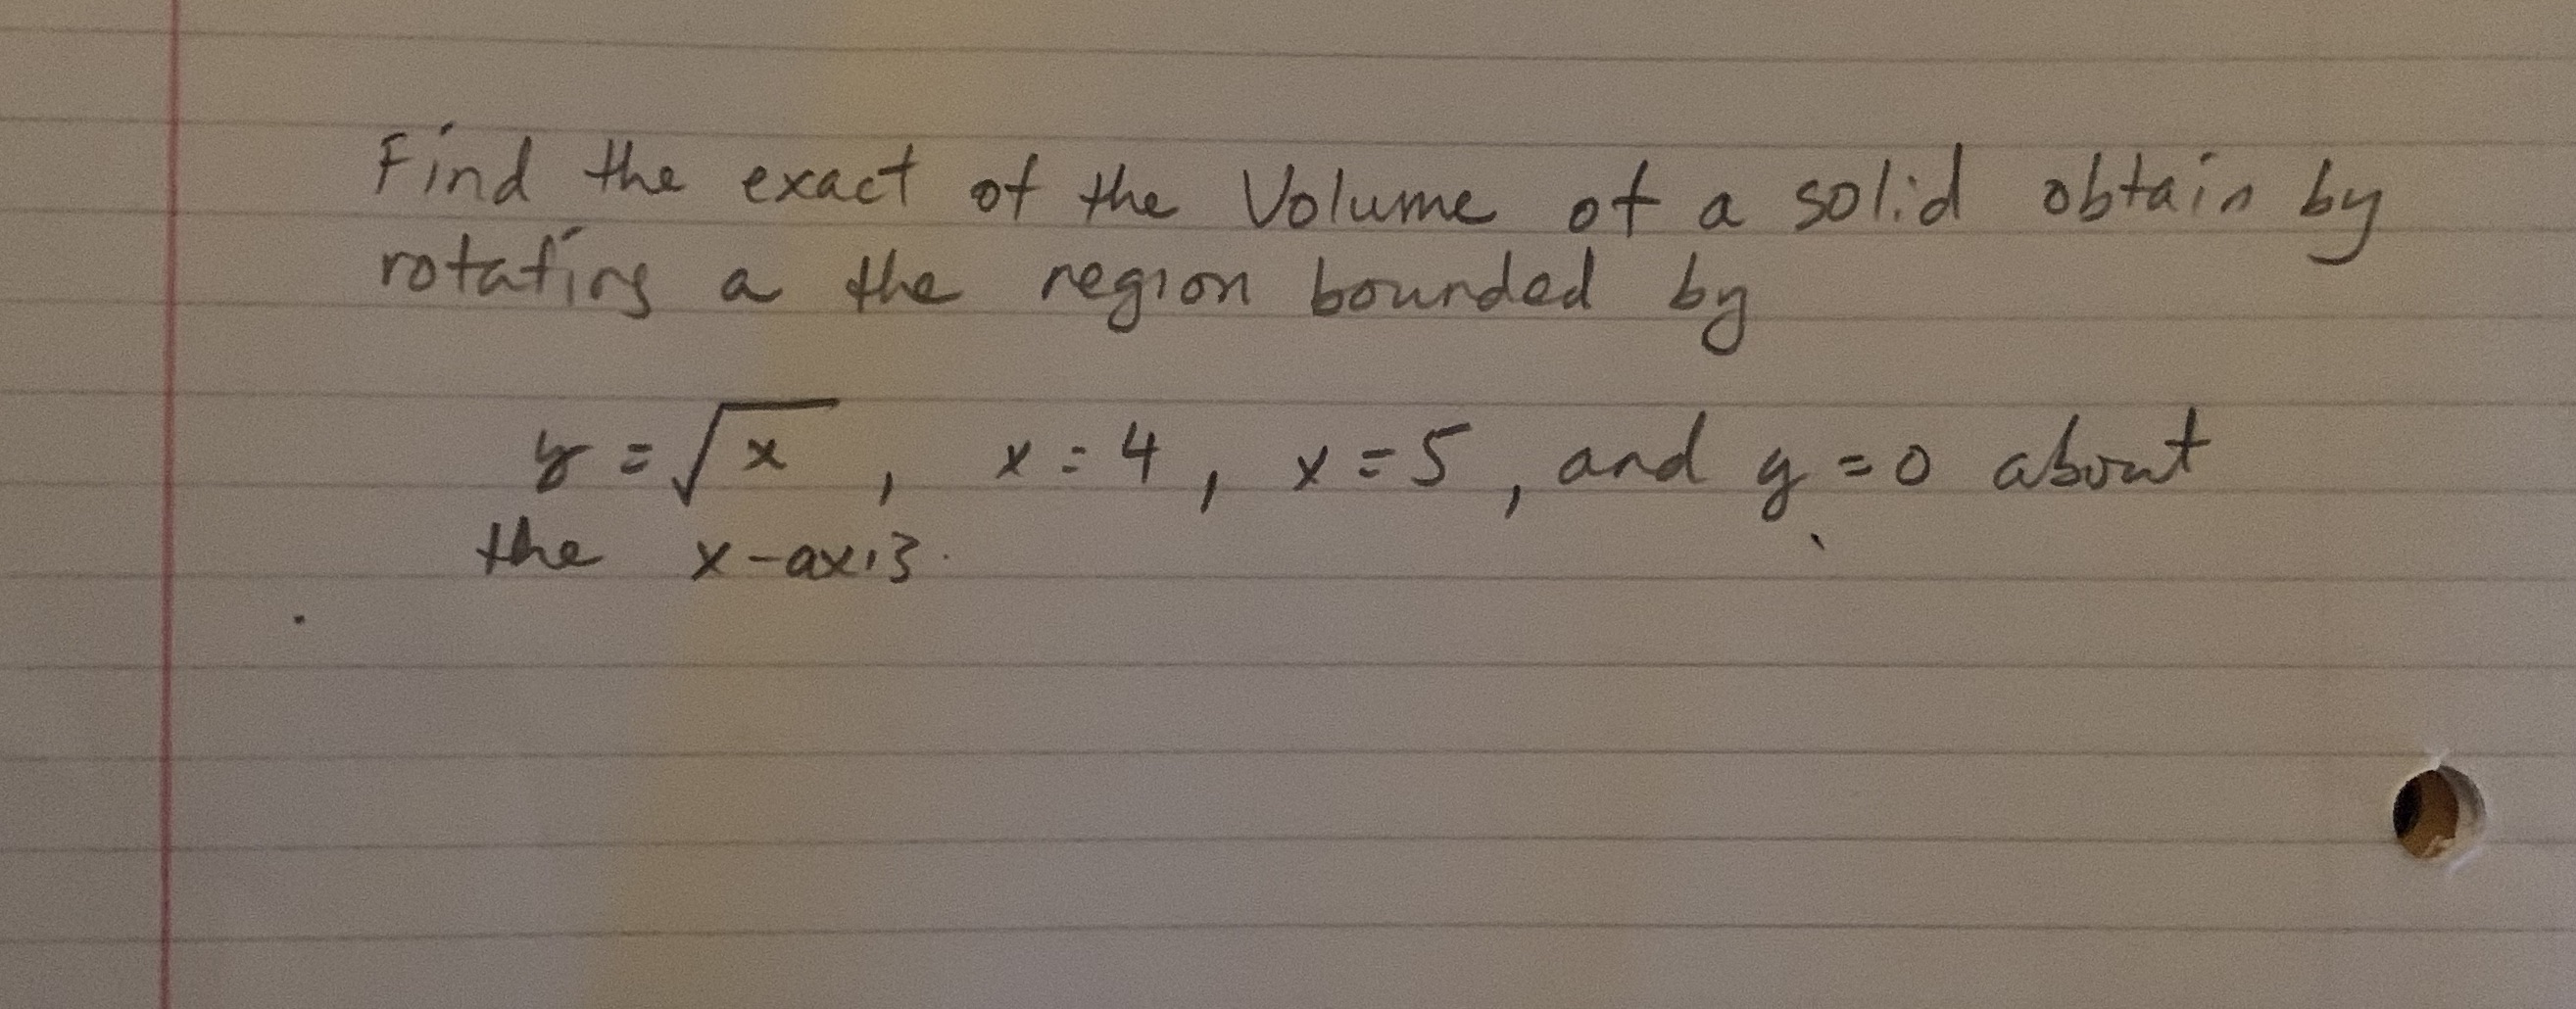 Find the exact of the Volume of a solid obtain by
rotating a the region bounded by
y = √x , x = 4 , x = 5 , and y = 0 about
the x-axis.